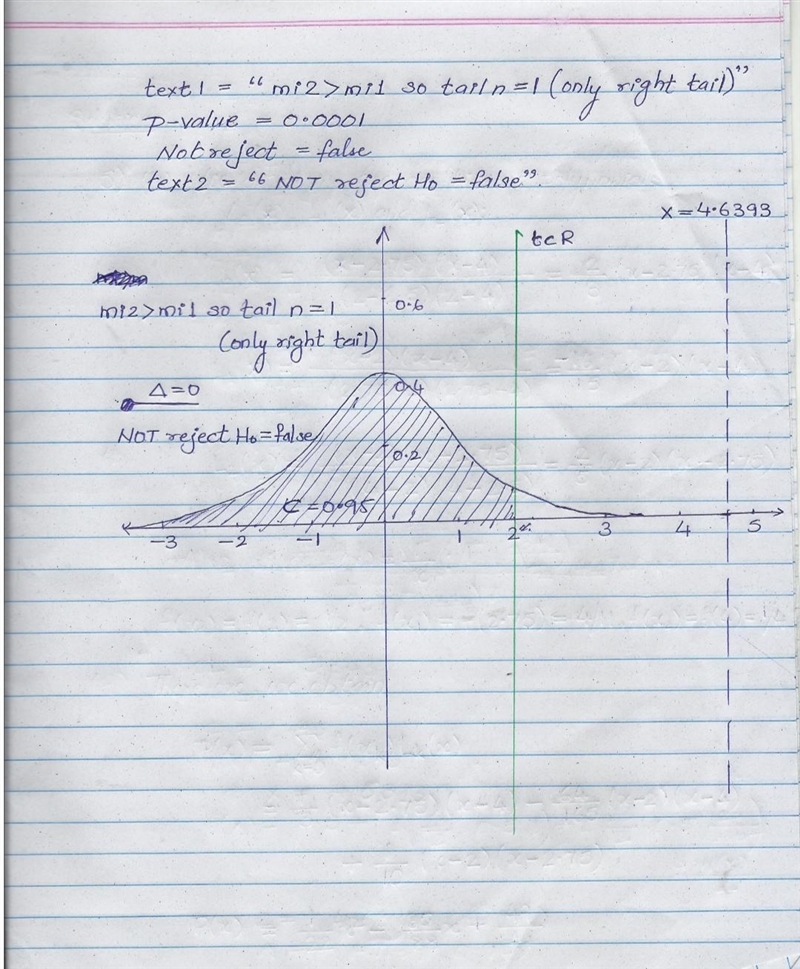 text1 = “mi2>mi1 so tail n=1 (only right tail)”
P-value = 0.0001
Not reject = false
text2 = “NOT reject H0 = false”.
x=4.6393
tcR
mi2>mi1 so tail n=1
0.6
(only right tail)
Δ=0
0.4
NOT reject H0=false
0.2
C=0.95
-3 -2 -1 1 2 3 4 5